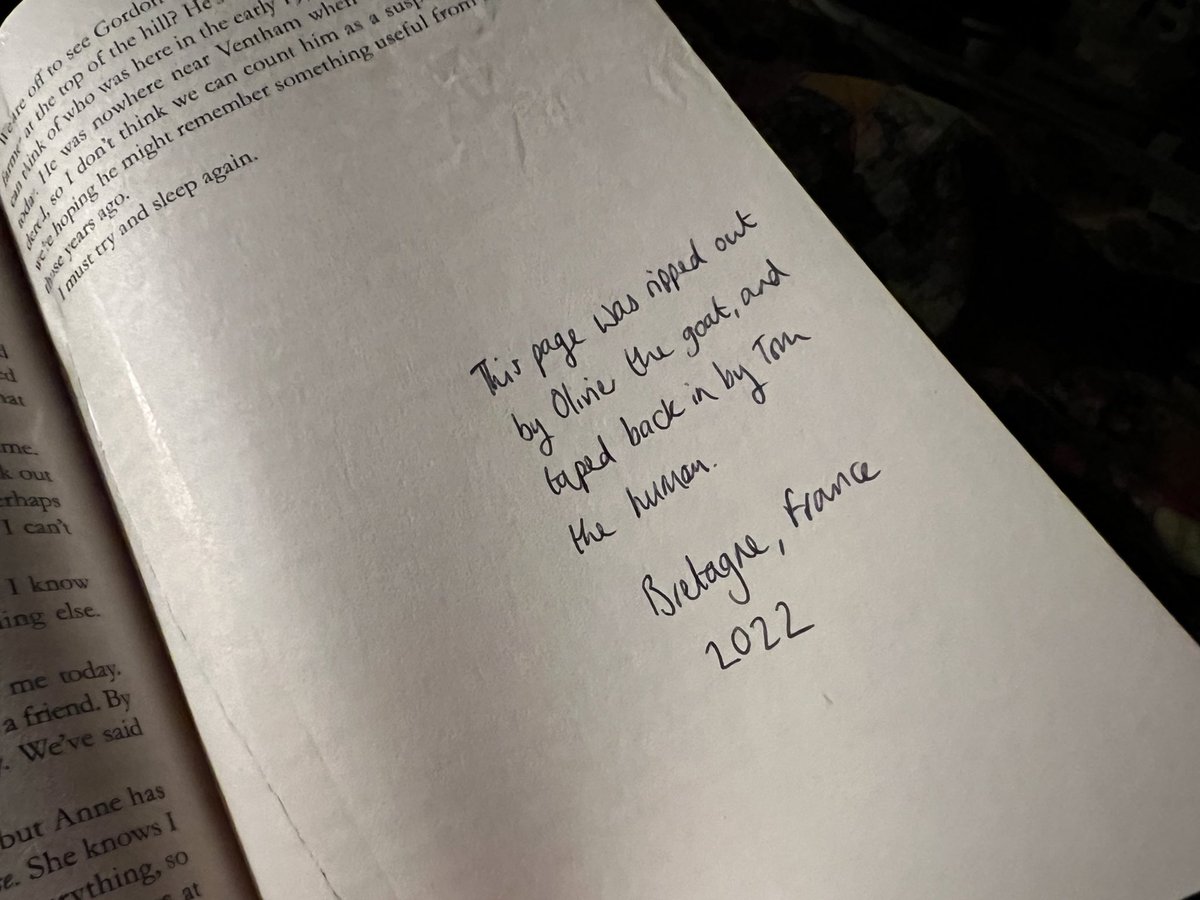 We are off to see Gordon
at the top of the hill? He
can think of who was here in the early
today. He was nowhere near Ventham when
dered, so I don't think we can count him as a
we're hoping he might remember something useful from
those years ago.
I must try and sleep again.
This page was ripped out
by Olivier the goat, and
taped back in by Tom
the human.
Bretagne, France
2022
me.
out
I can't
I know
else.
me today.
a friend. By
We've said
but Anne has
She knows I
so
at